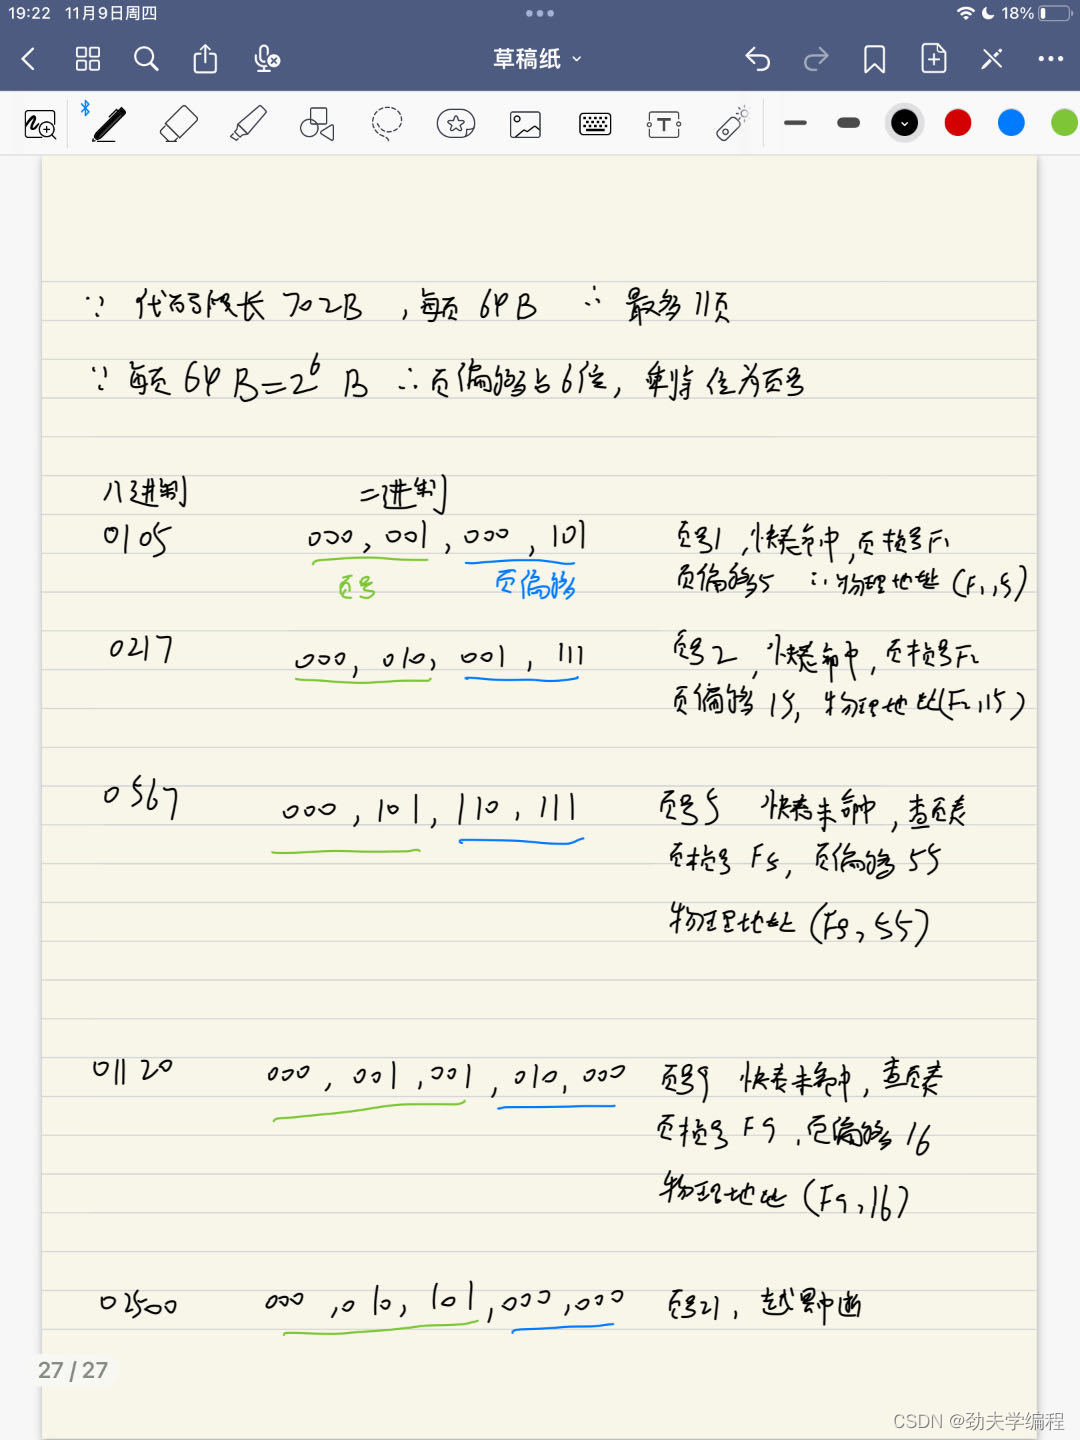 19:22 11月9日周四 18%
草稿纸
T
∵ 代码段长 702B ，每页 64B ∴ 最多11页
∵ 每页 64B=2^6 B ∴页偏移占6位，剩待位为页号
八进制 二进制
0105 000,001,000,101 页号1,快表命中,页框号F1
页号 页偏移 页偏移5 ∴物理地址(F1,5)
0217 000,010,001,111 页号2,快表命中,页框号F2
页偏移15,物理地址(F2,15)
0567 000,101,110,111 页号5 快表未命中,查页表
页框号 F5,页偏移 55
物理地址(F8,55)
01120 000,001,001,010,000 页号9 快表未命中,查页表
页框号 F9,页偏移 16
物理地址(F9,16)
02500 000,010,101,000,000 页号21,越界中断
27 / 27
CSDN @劲夫学编程